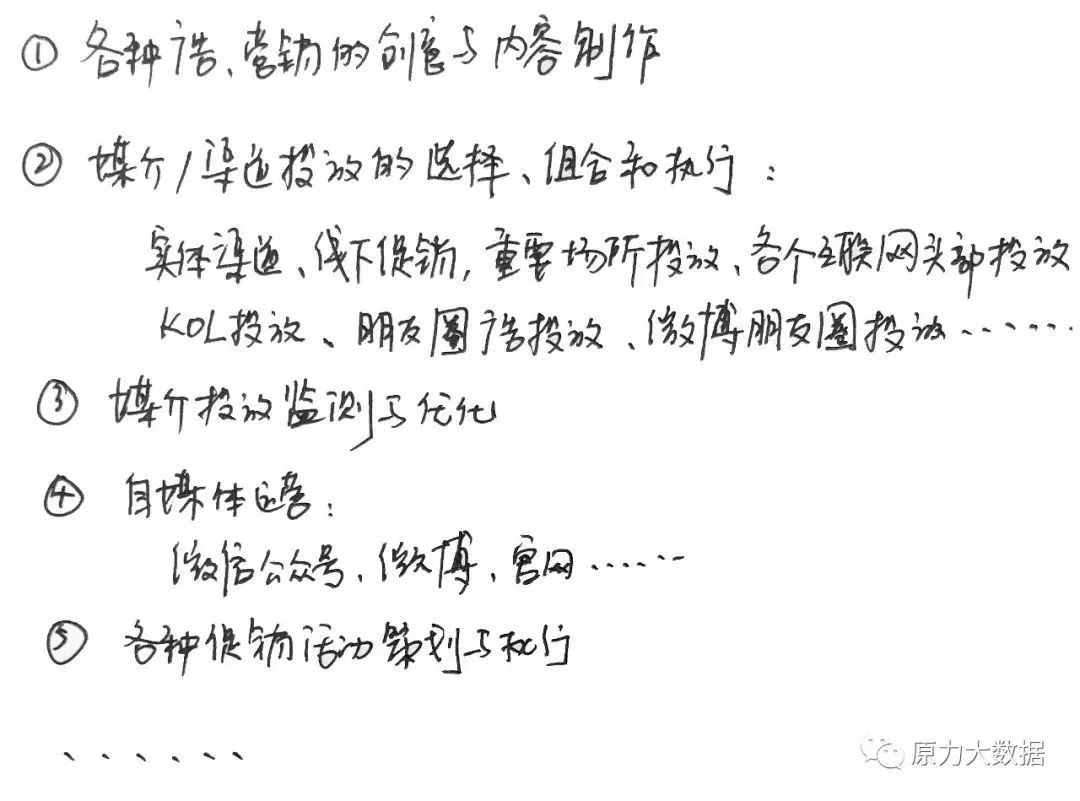 ① 各种广告、营销的创意与内容制作
② 媒介/渠道投放的选择、组合和执行：
实体渠道、线下促销，重要场所投放、各个互联网头部投放
KOL投放、朋友圈广告投放、微博朋友圈投放······
③ 媒介投放监测与优化
④ 自媒体运营：
微信公众号、微博、官网······
⑤ 各种促销活动策划与执行
、、、、、、
原力大数据